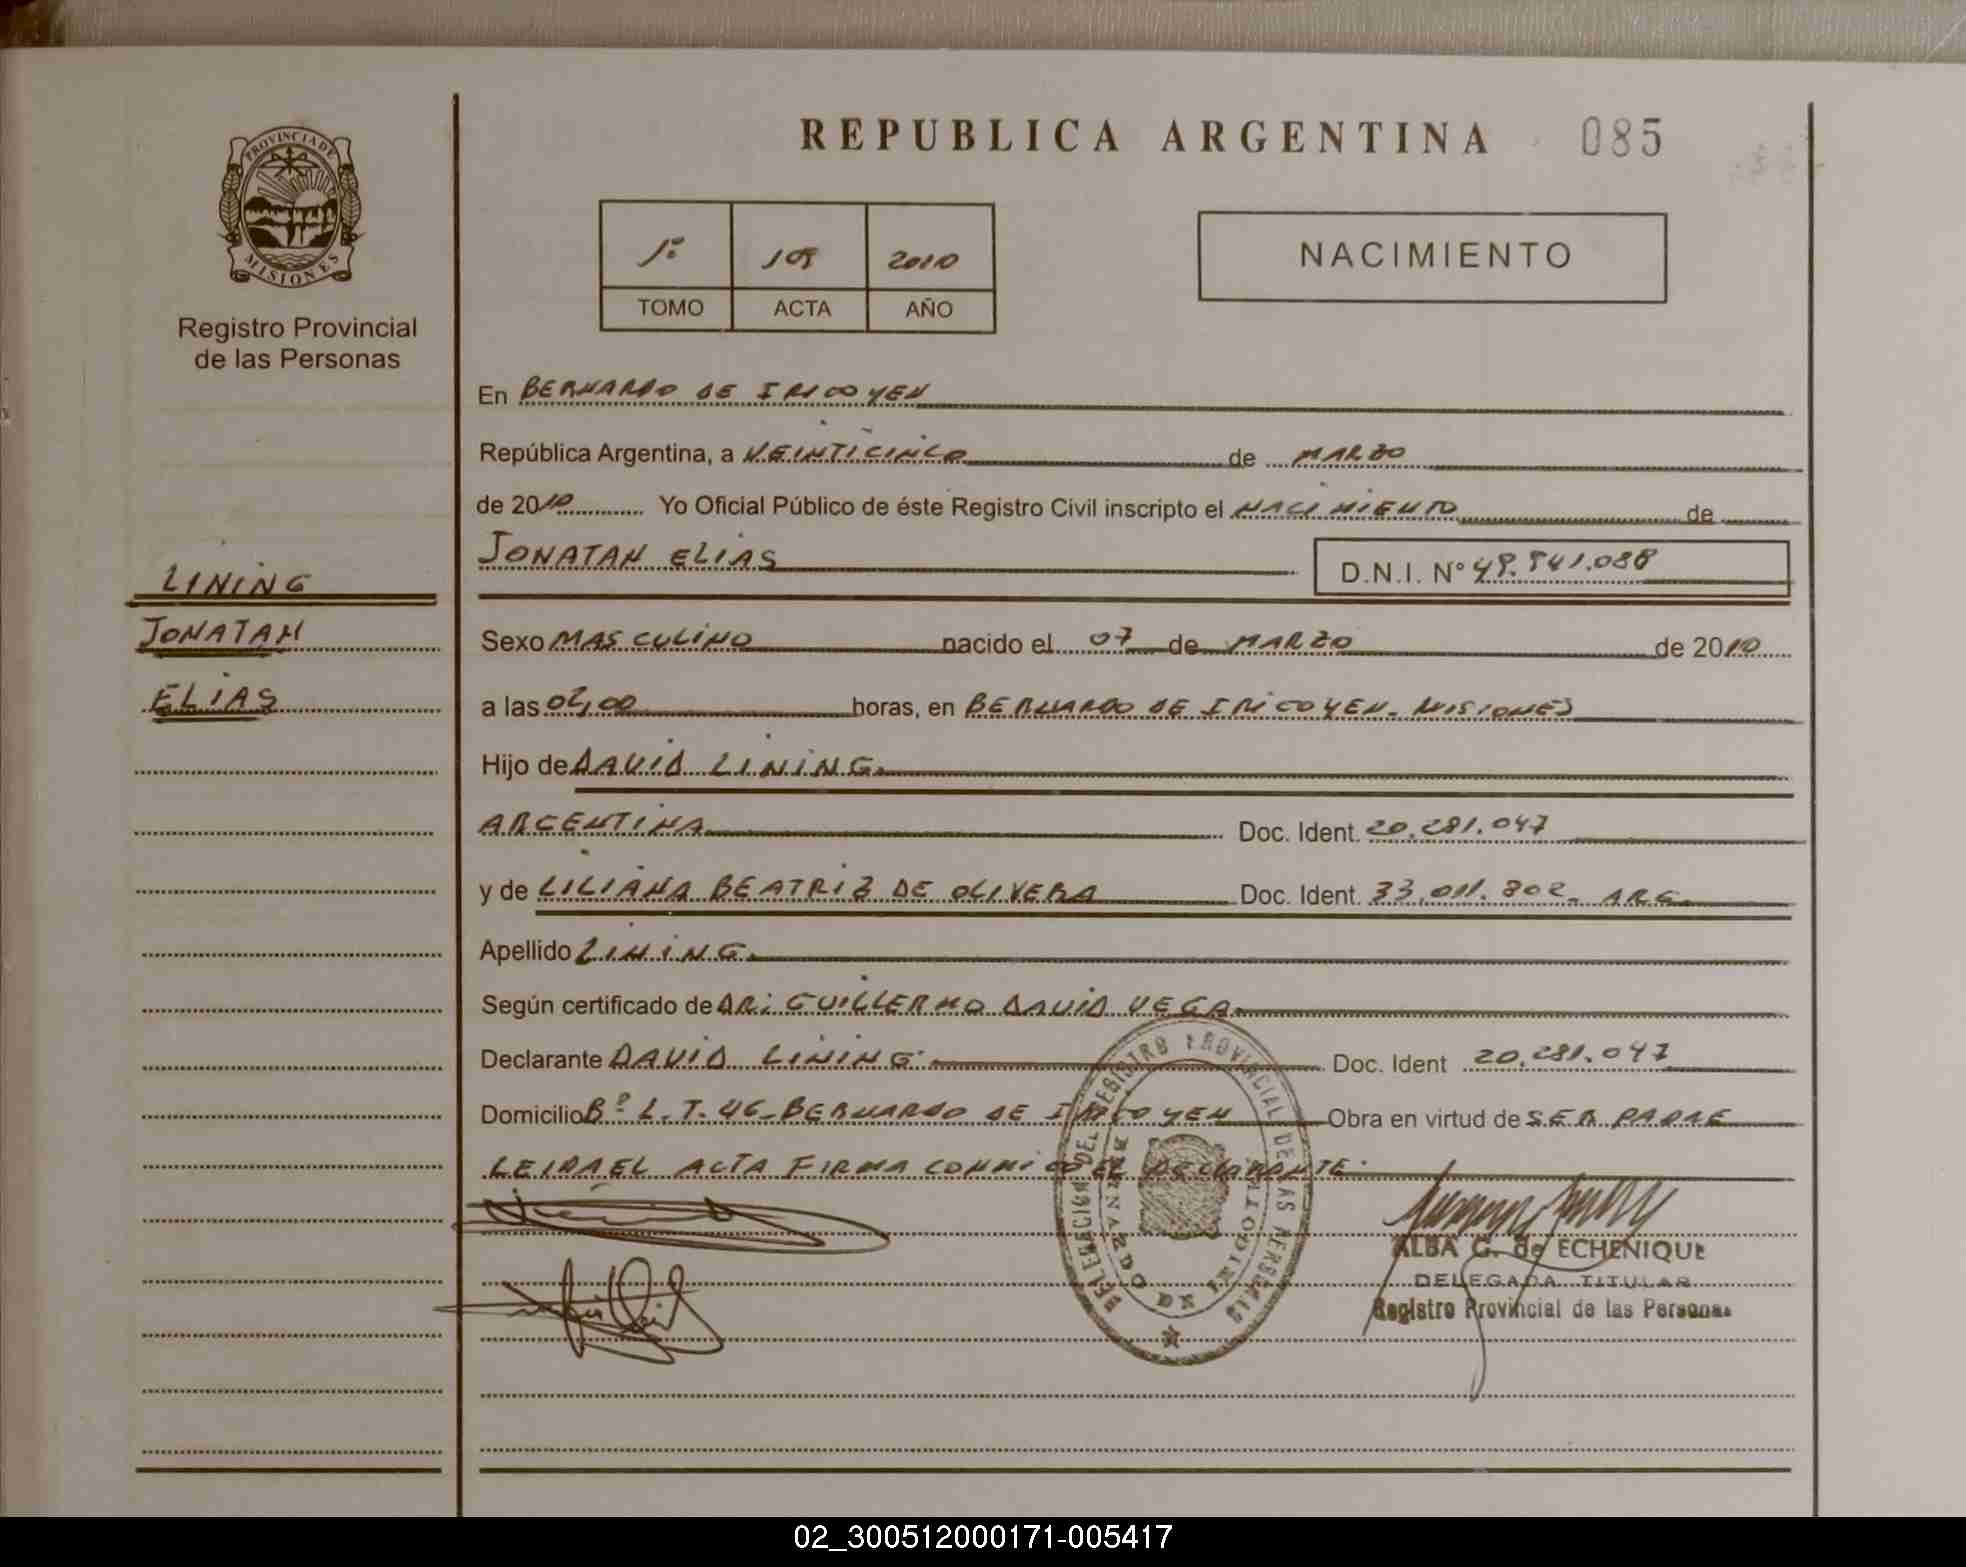 PROVINCIA DE
MISIONES
Registro Provincial
de las Personas
REPUBLICA ARGENTINA 085
1º 2010
TOMO ACTA AÑO
NACIMIENTO
En BERNARDO DE IRIGOYEN
República Argentina, a VEINTICINCO de MARZO
de 2010 Yo Oficial Público de éste Registro Civil inscripto el NACIMIENTO de
JONATAN ELIAS D.N.I. Nº
LINING
JONATAN
ELIAS
Sexo MASCULINO nacido el 07 de MARZO de 2010
a las horas, en BERNARDO DE IRIGOYEN. MISIONES
Hijo de DAVID LINING.
ARGENTINA Doc. Ident. 20.281.047
y de LILIANA BEATRIZ DE OLIVERA Doc. Ident. 33.011.802. ARG.
Apellido LINING.
Según certificado de DR: GUILLERMO DAVID VEGA.
Declarante DAVID LINING. Doc. Ident 20.281.047
Domicilio Bº L.T. 46. BERNARDO DE IRIGOYEN Obra en virtud de SER PADRE
LEIDA EL ACTA FIRMA CONMIGO EL DECLARANTE.
DELEGACION DEL REGISTRO PROVINCIAL DE LAS PERSONAS
BERNARDO DE IRIGOYEN
ALBA G. de ECHENIQUE
DELEGADA TITULAR
Registro Provincial de las Personas
02_300512000171-005417